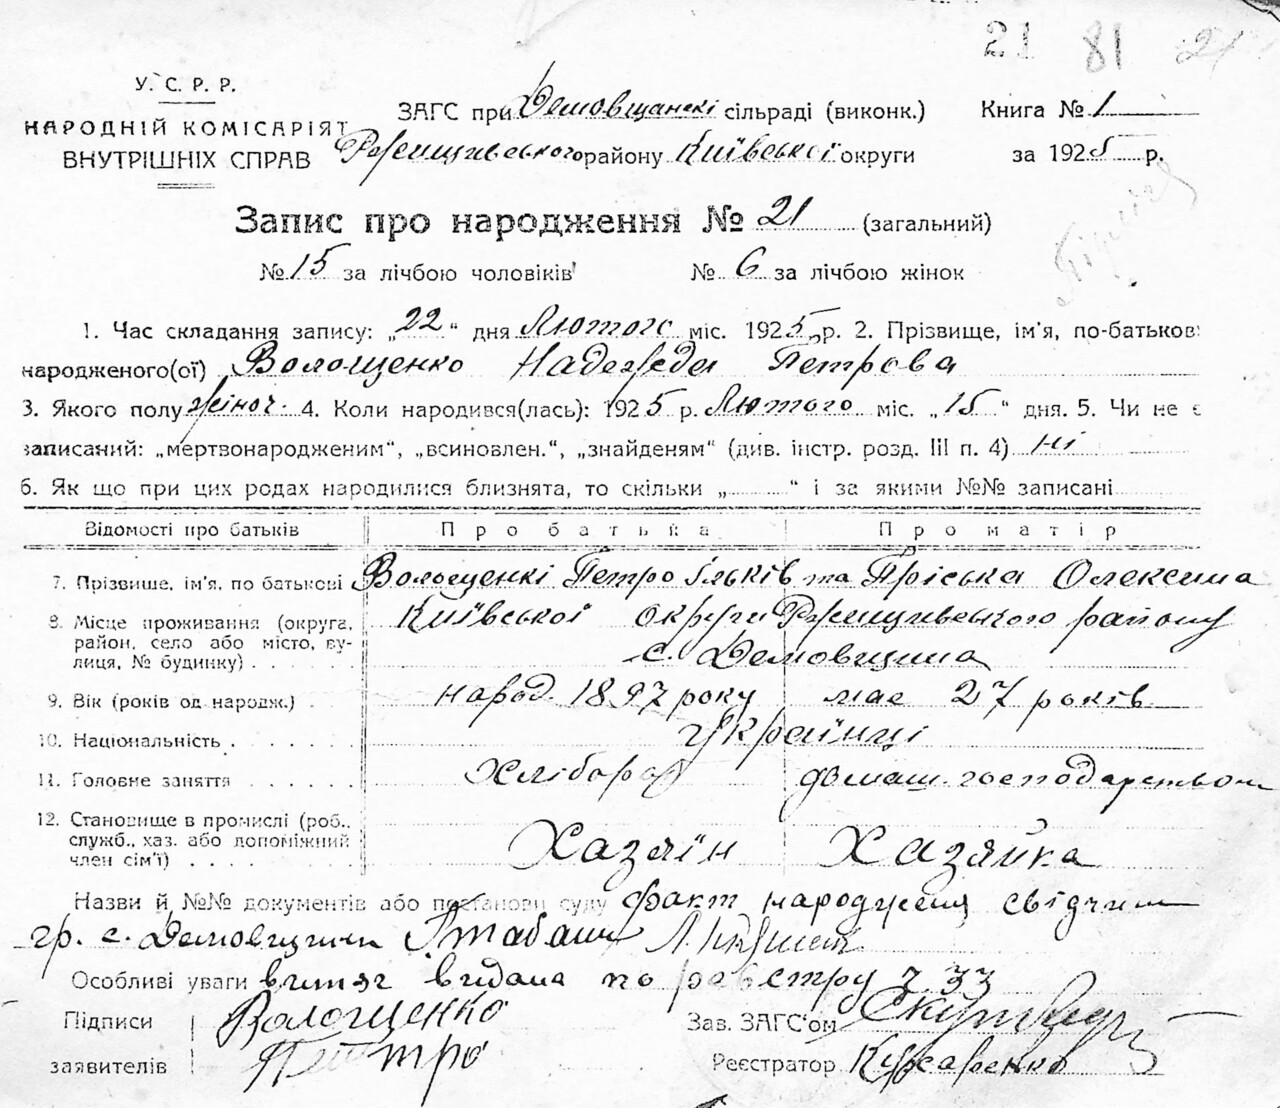 21 81 21
У.С.Р.Р.
НАРОДНІЙ КОМІСАРІЯТ
ВНУТРІШНІХ СПРАВ
ЗАГС при Демовщанскі сільраді (виконк.)
Ржищивського району Київської округи
Книга № 1
за 1925 р.
Запис про народження № 21 (загальний)
№ 15 за лічбою чоловіків № 6 за лічбою жінок
1. Час складання запису: „22“ дня Лютого міс. 1925 р. 2. Прізвище, ім'я, по-батькові
народженого(ої) Волощенко Надежда Петрова
3. Якого полу жіноч. 4. Коли народився(лась): 1925 р. Лютого міс. „15“ дня. 5. Чи не є
записаний: „мертвонародженим“, „всиновлен.“, „знайденям“ (див. інстр. розд. III п. 4) ні
6. Як що при цих родах народилися близнята, то скільки „ “ і за якими №№ записані
Відомості про батьків Про батька Про матір
7. Прізвище, ім'я, по батькові Волощенкі Петро Ільків та Пріська Олексина
8. Місце проживання (округа, район, село або місто, вулиця, № будинку) Київської округи Ржищивського району
с. Демовщина
9. Вік (років од народж.) народ. 1897 року має 27 років
10. Національність Українці
11. Головне заняття Хлібороб домаш. господарством
12. Становище в промислі (роб., служб., хаз. або допоміжний член сім'ї) Хазяїн Хазяйка
Назви й №№ документів або постанови суду факт народженя свідчили
гр. с. Демовщини
Особливі уваги витяг видана по реєстру ч. 33
Підписи заявителів Волощенко
Петро
Зав. ЗАГС'ом
Реєстратор